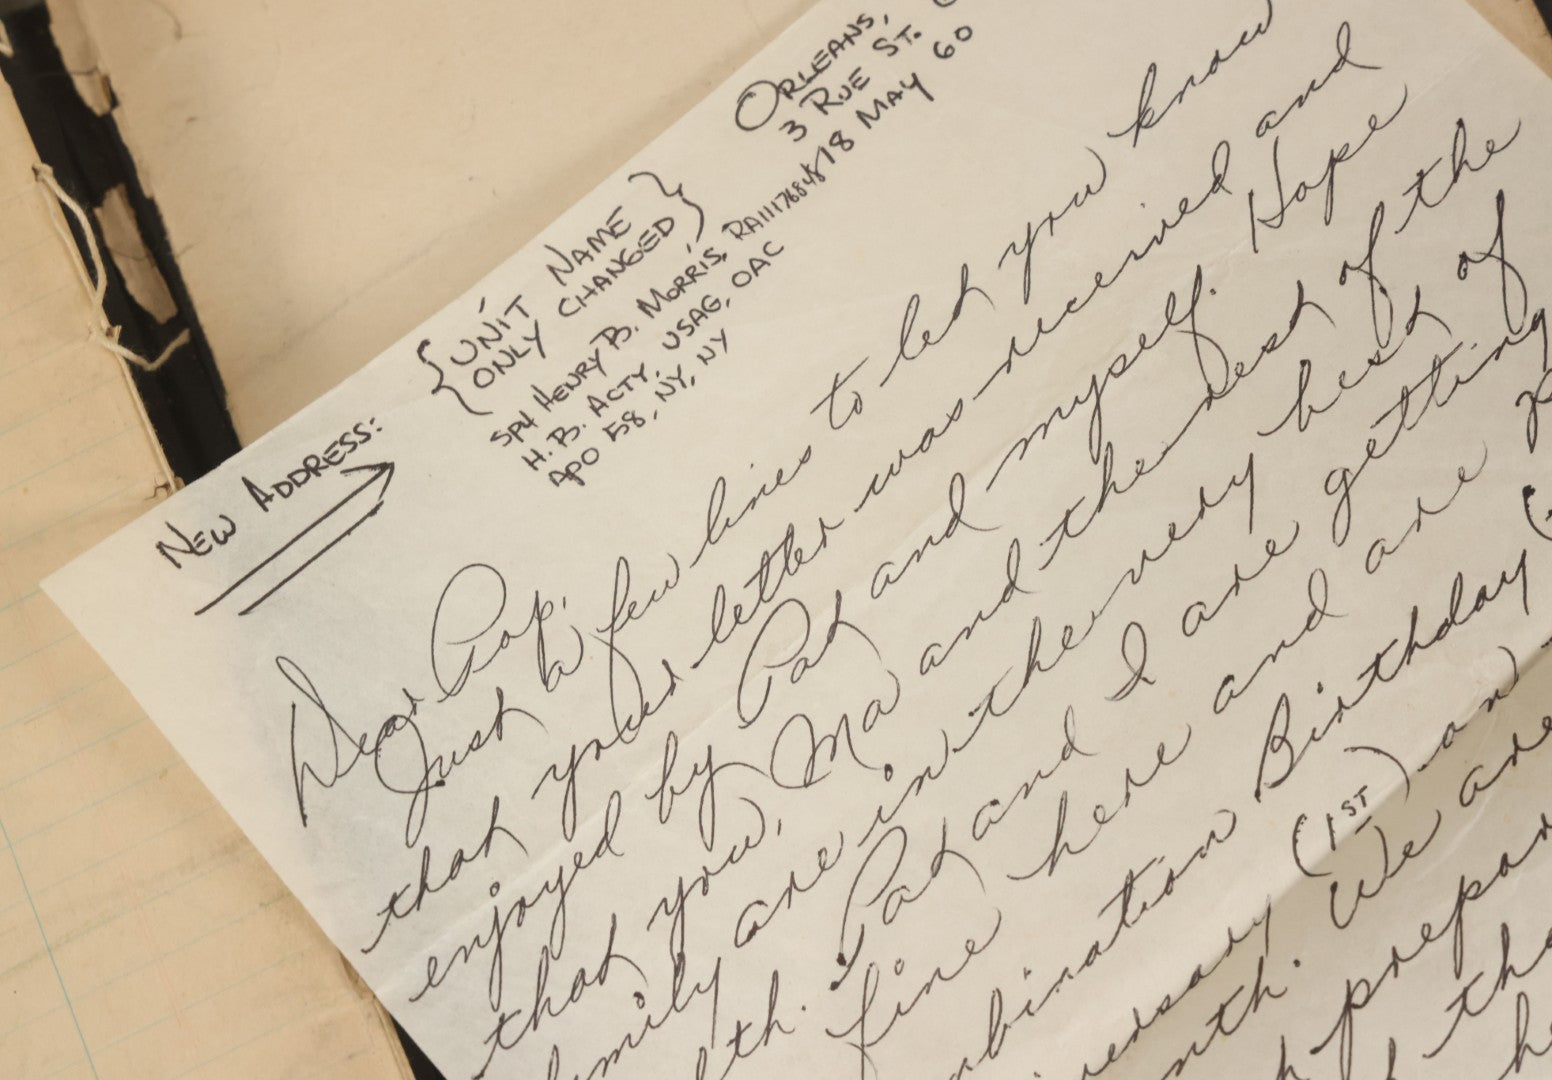 ORLEANS,
3 RUE ST.
18 MAY 60
NEW ADDRESS:
{UNIT NAME
ONLY CHANGED}
SP4 HENRY B. MORRIS, RA11176848
H.B. ACTY, USAG, OAC
APO 58, NY, NY
Dear Pop,
Just a few lines to let you know
that your letter was received and
enjoyed by Pat and myself. Hope
that you, Ma and the rest of the
family are in the very best of
Pat and I are getting
fine here and are
Birthday
(1ST) an
We are